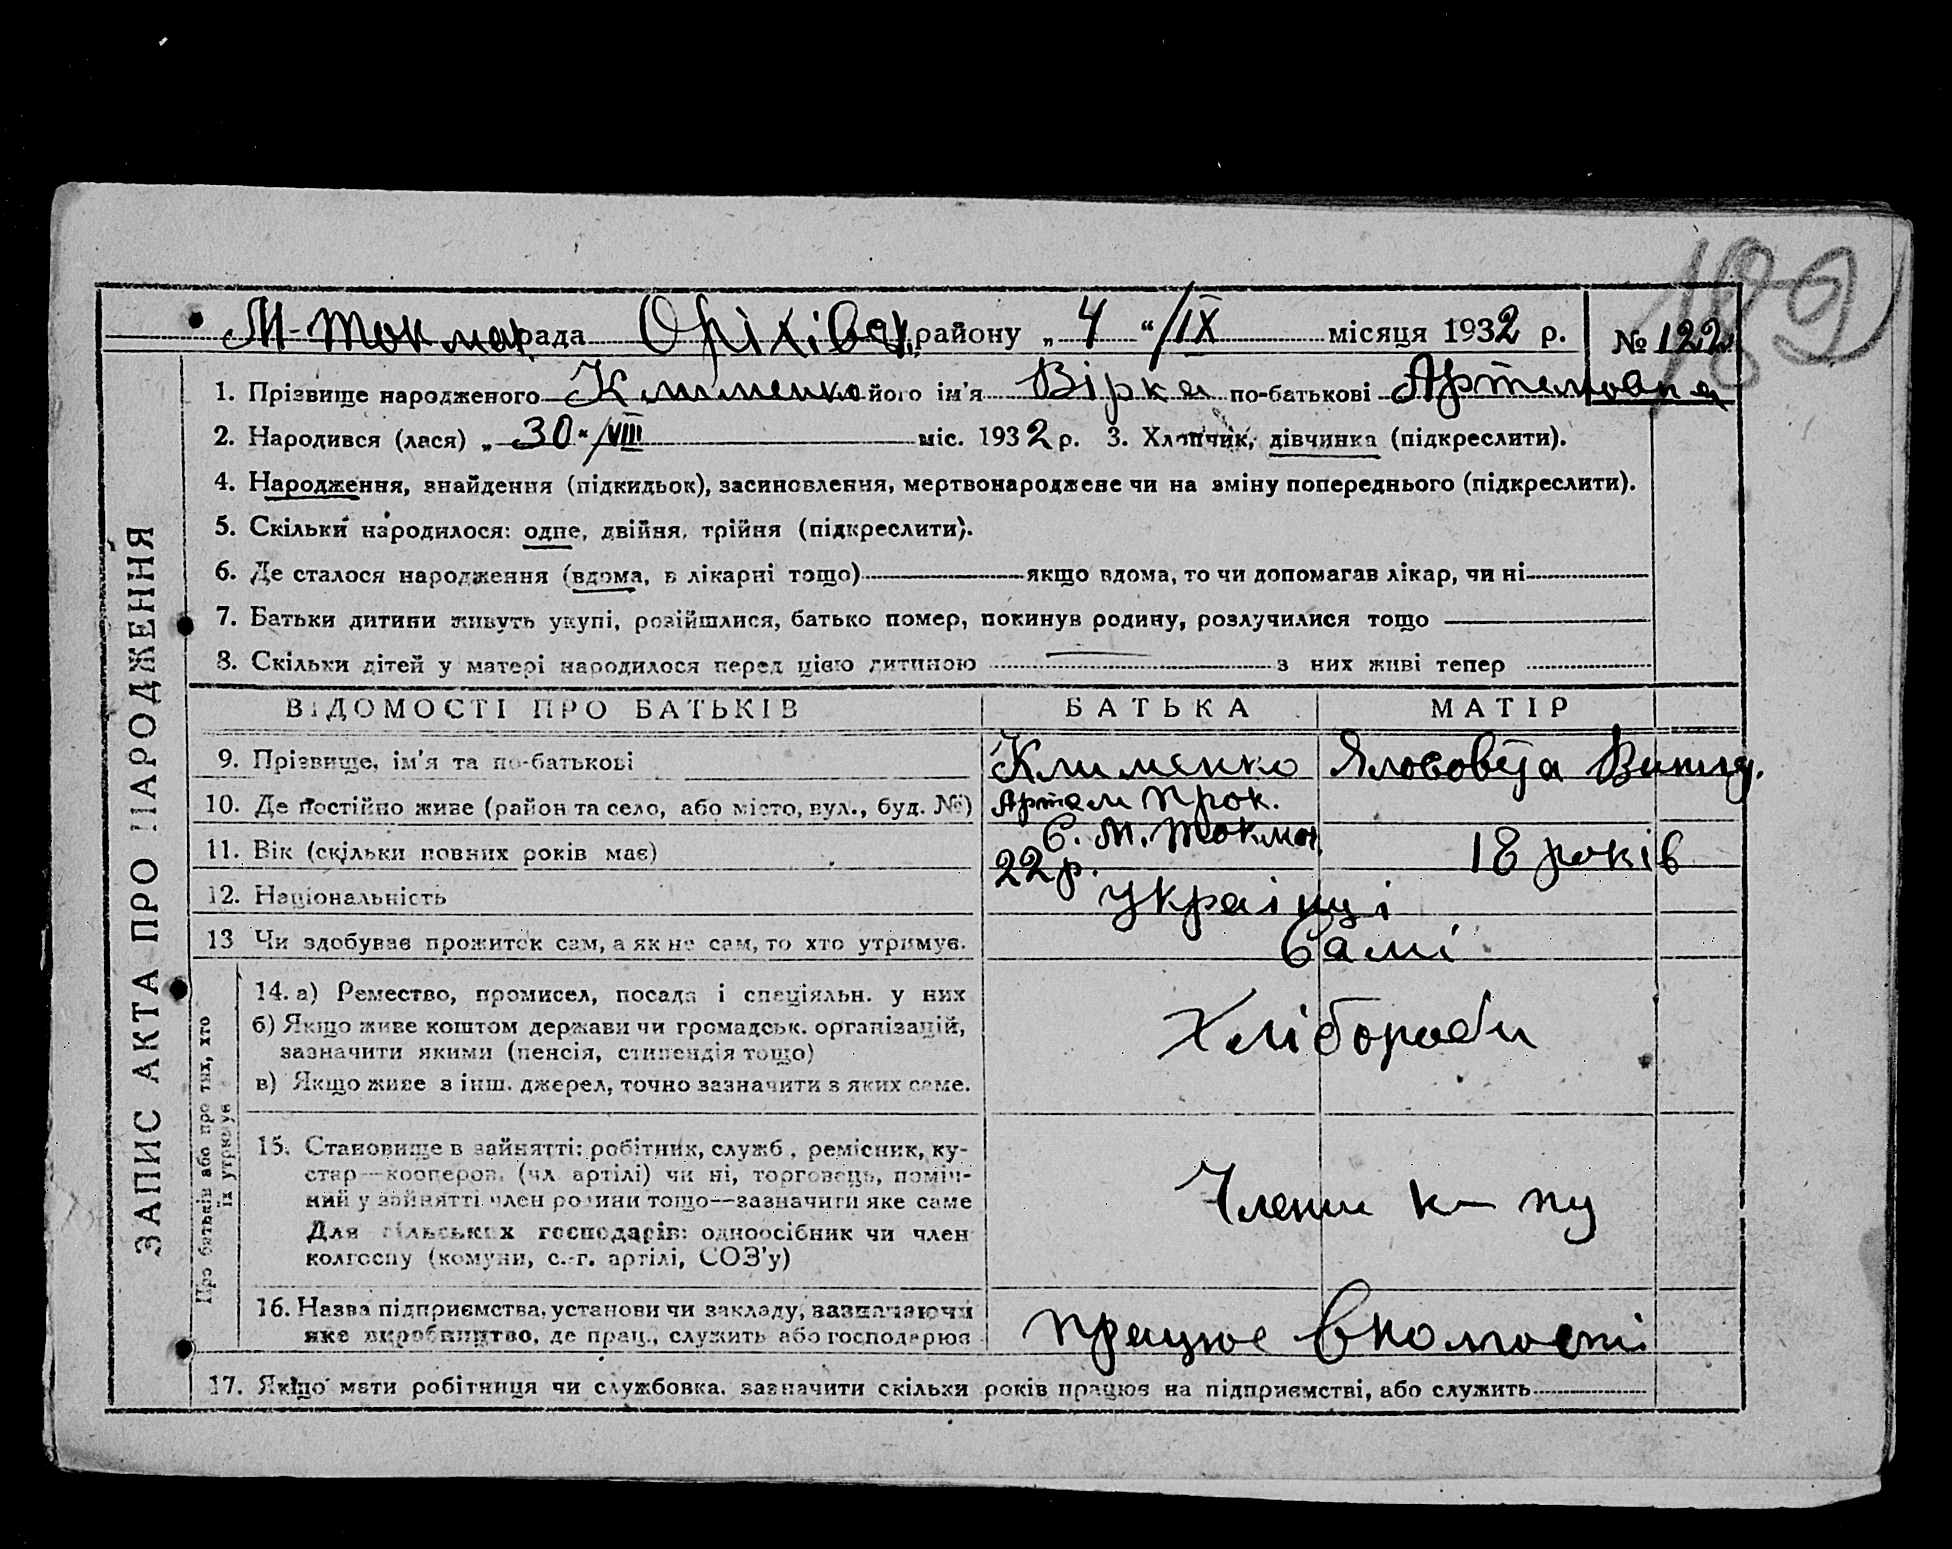 189
М-Токмацрада Оріхівськ. району „ 4 “ /IX місяця 1932 р. № 122
1. Прізвище народженого Клименко його ім'я Вірка по-батькові Артемовна
2. Народився (лася) „ 30 “ /VIII міс. 1932 р. 3. Хлопчик, дівчинка (підкреслити).
4. Народження, знайдення (підкидьок), засиновлення, мертвонароджене чи на зміну попереднього (підкреслити).
5. Скільки народилося: одне, двійня, трійня (підкреслити).
6. Де сталося народження (вдома, в лікарні тощо) якщо вдома, то чи допомагав лікар, чи ні
7. Батьки дитини живуть укупі, розійшлися, батько помер, покинув родину, розлучилися тощо
8. Скільки дітей у матері народилося перед цією дитиною — з них живі тепер
ЗАПИС АКТА ПРО НАРОДЖЕННЯ
ВІДОМОСТІ ПРО БАТЬКІВ БАТЬКА МАТІР
9. Прізвище, ім'я та по-батькові Клименко
10. Де постійно живе (район та село, або місто, вул., буд. №) Артем Прок.
С. М. Токмач.
11. Вік (скільки повних років має) 22 р. 18 років
12. Національність Українці
13 Чи здобував прожиток сам, а як не сам, то хто утримує. Самі
Про батьків або про тих, хто
їх утримує
14. а) Ремество, промисел, посада і спеціяльн. у них
б) Якщо живе коштом держави чи громадськ. організацій,
зазначити якими (пенсія, стипендія тощо)
в) Якщо живе з інш. джерел, точно зазначити з яких саме.
Хлібороби
15. Становище в зайнятті: робітник, служб., ремісник, ку-
стар—кооперов. (чл. артілі) чи ні, торговець, поміч-
ний у зайнятті член родини тощо—зазначити яке саме
Для сільських господарів: одноосібник чи член
колгоспу (комуни, с.-г. артілі, СОЗ'у)
Члени к-пу
16. Назва підприємства, установи чи закладу, зазначаючи
яке виробництво, де прац., служить або господарює
працює
17. Якщо мати робітниця чи службовка, зазначити скільки років працює на підприємстві, або служить